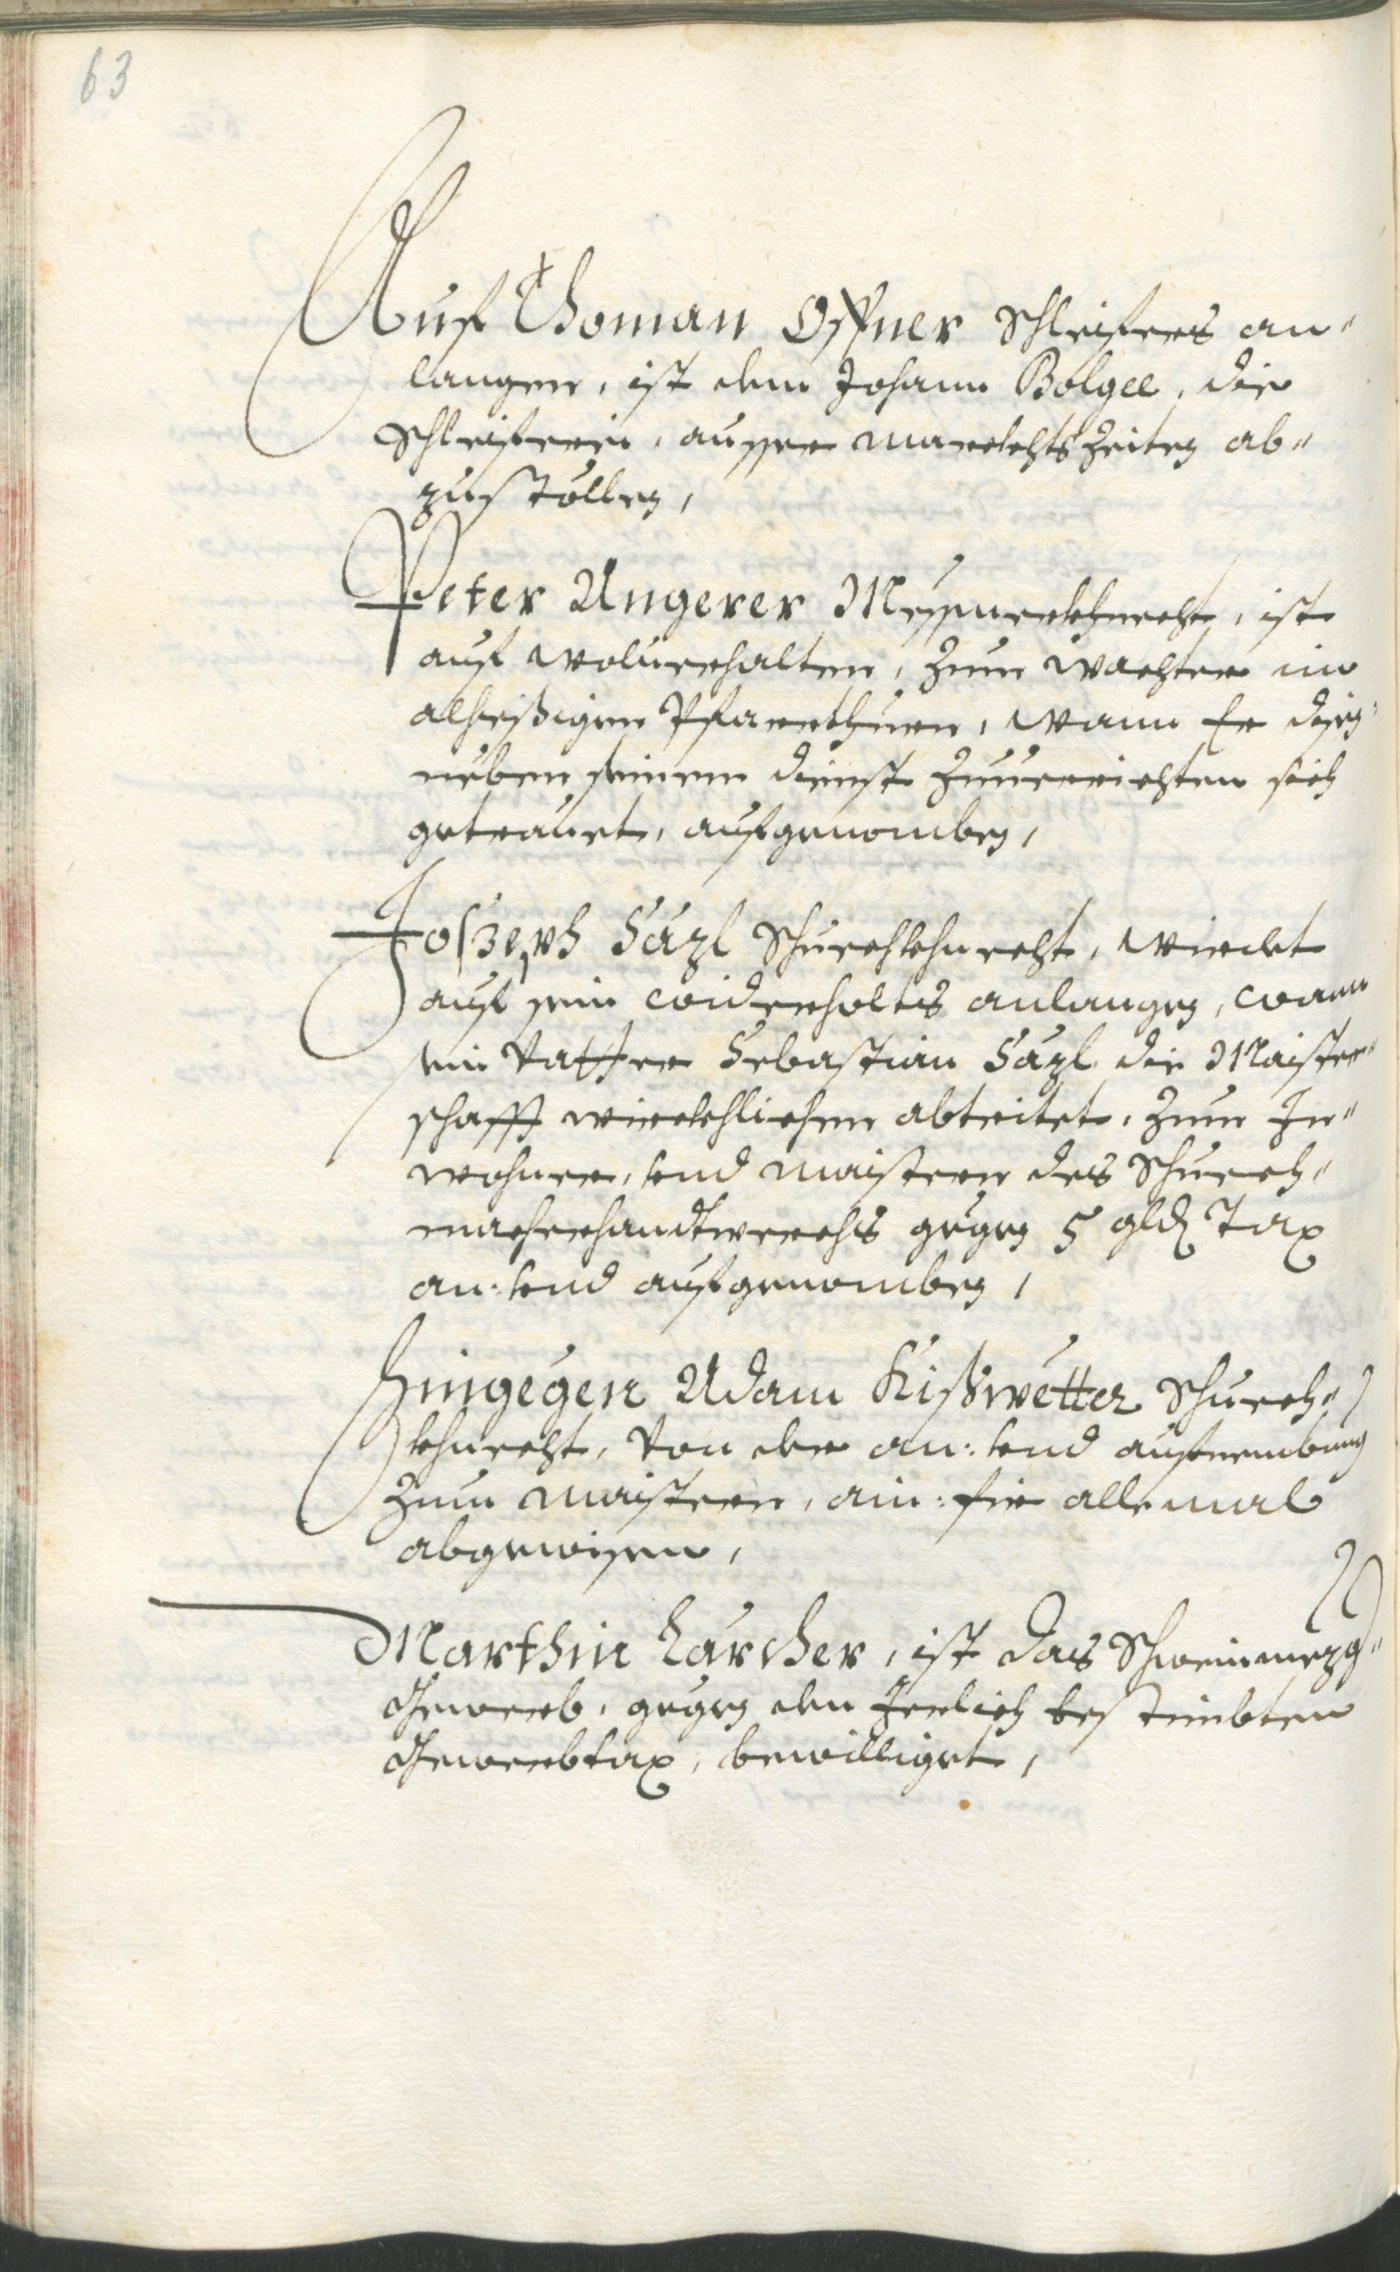 63
Auf Thoman Offner Schleifers an„
langen, ist dem Johann Bolgee, die
Schleiferei, ausser marckhts Zeiten ab„
zustöllen,
Peter Ungerer Messnerkhnecht, ist
auf wolverhalten, zum wachter im
alhiesigen Pfarrthurn, wann Er disen
neben seinem dienst zuverrichten sich
getrauet, aufgenomben,
Joseph Säzl Schuechkhnecht, wirdet
auf sein widerholtes anlangen, wann
sein Vatter Sebastian Säzl die Maister„
schafft wirckhlichen abtrittet, zum In„
wohner, und maistern des Schuech„
macherhandtwerchs gegen 5 gld Tax
an: und aufgenomben,
Hingegen Adam Kißwetter Schuech„
khnecht, von der an: und aufnembung
zum maistern, ain: für alle mal
abgewisen,
Marthin Larcher, ist das Schweinmezg„
Gewerb, gegen den Jerlich bestimbten
Gewerbtax, bewilliget,